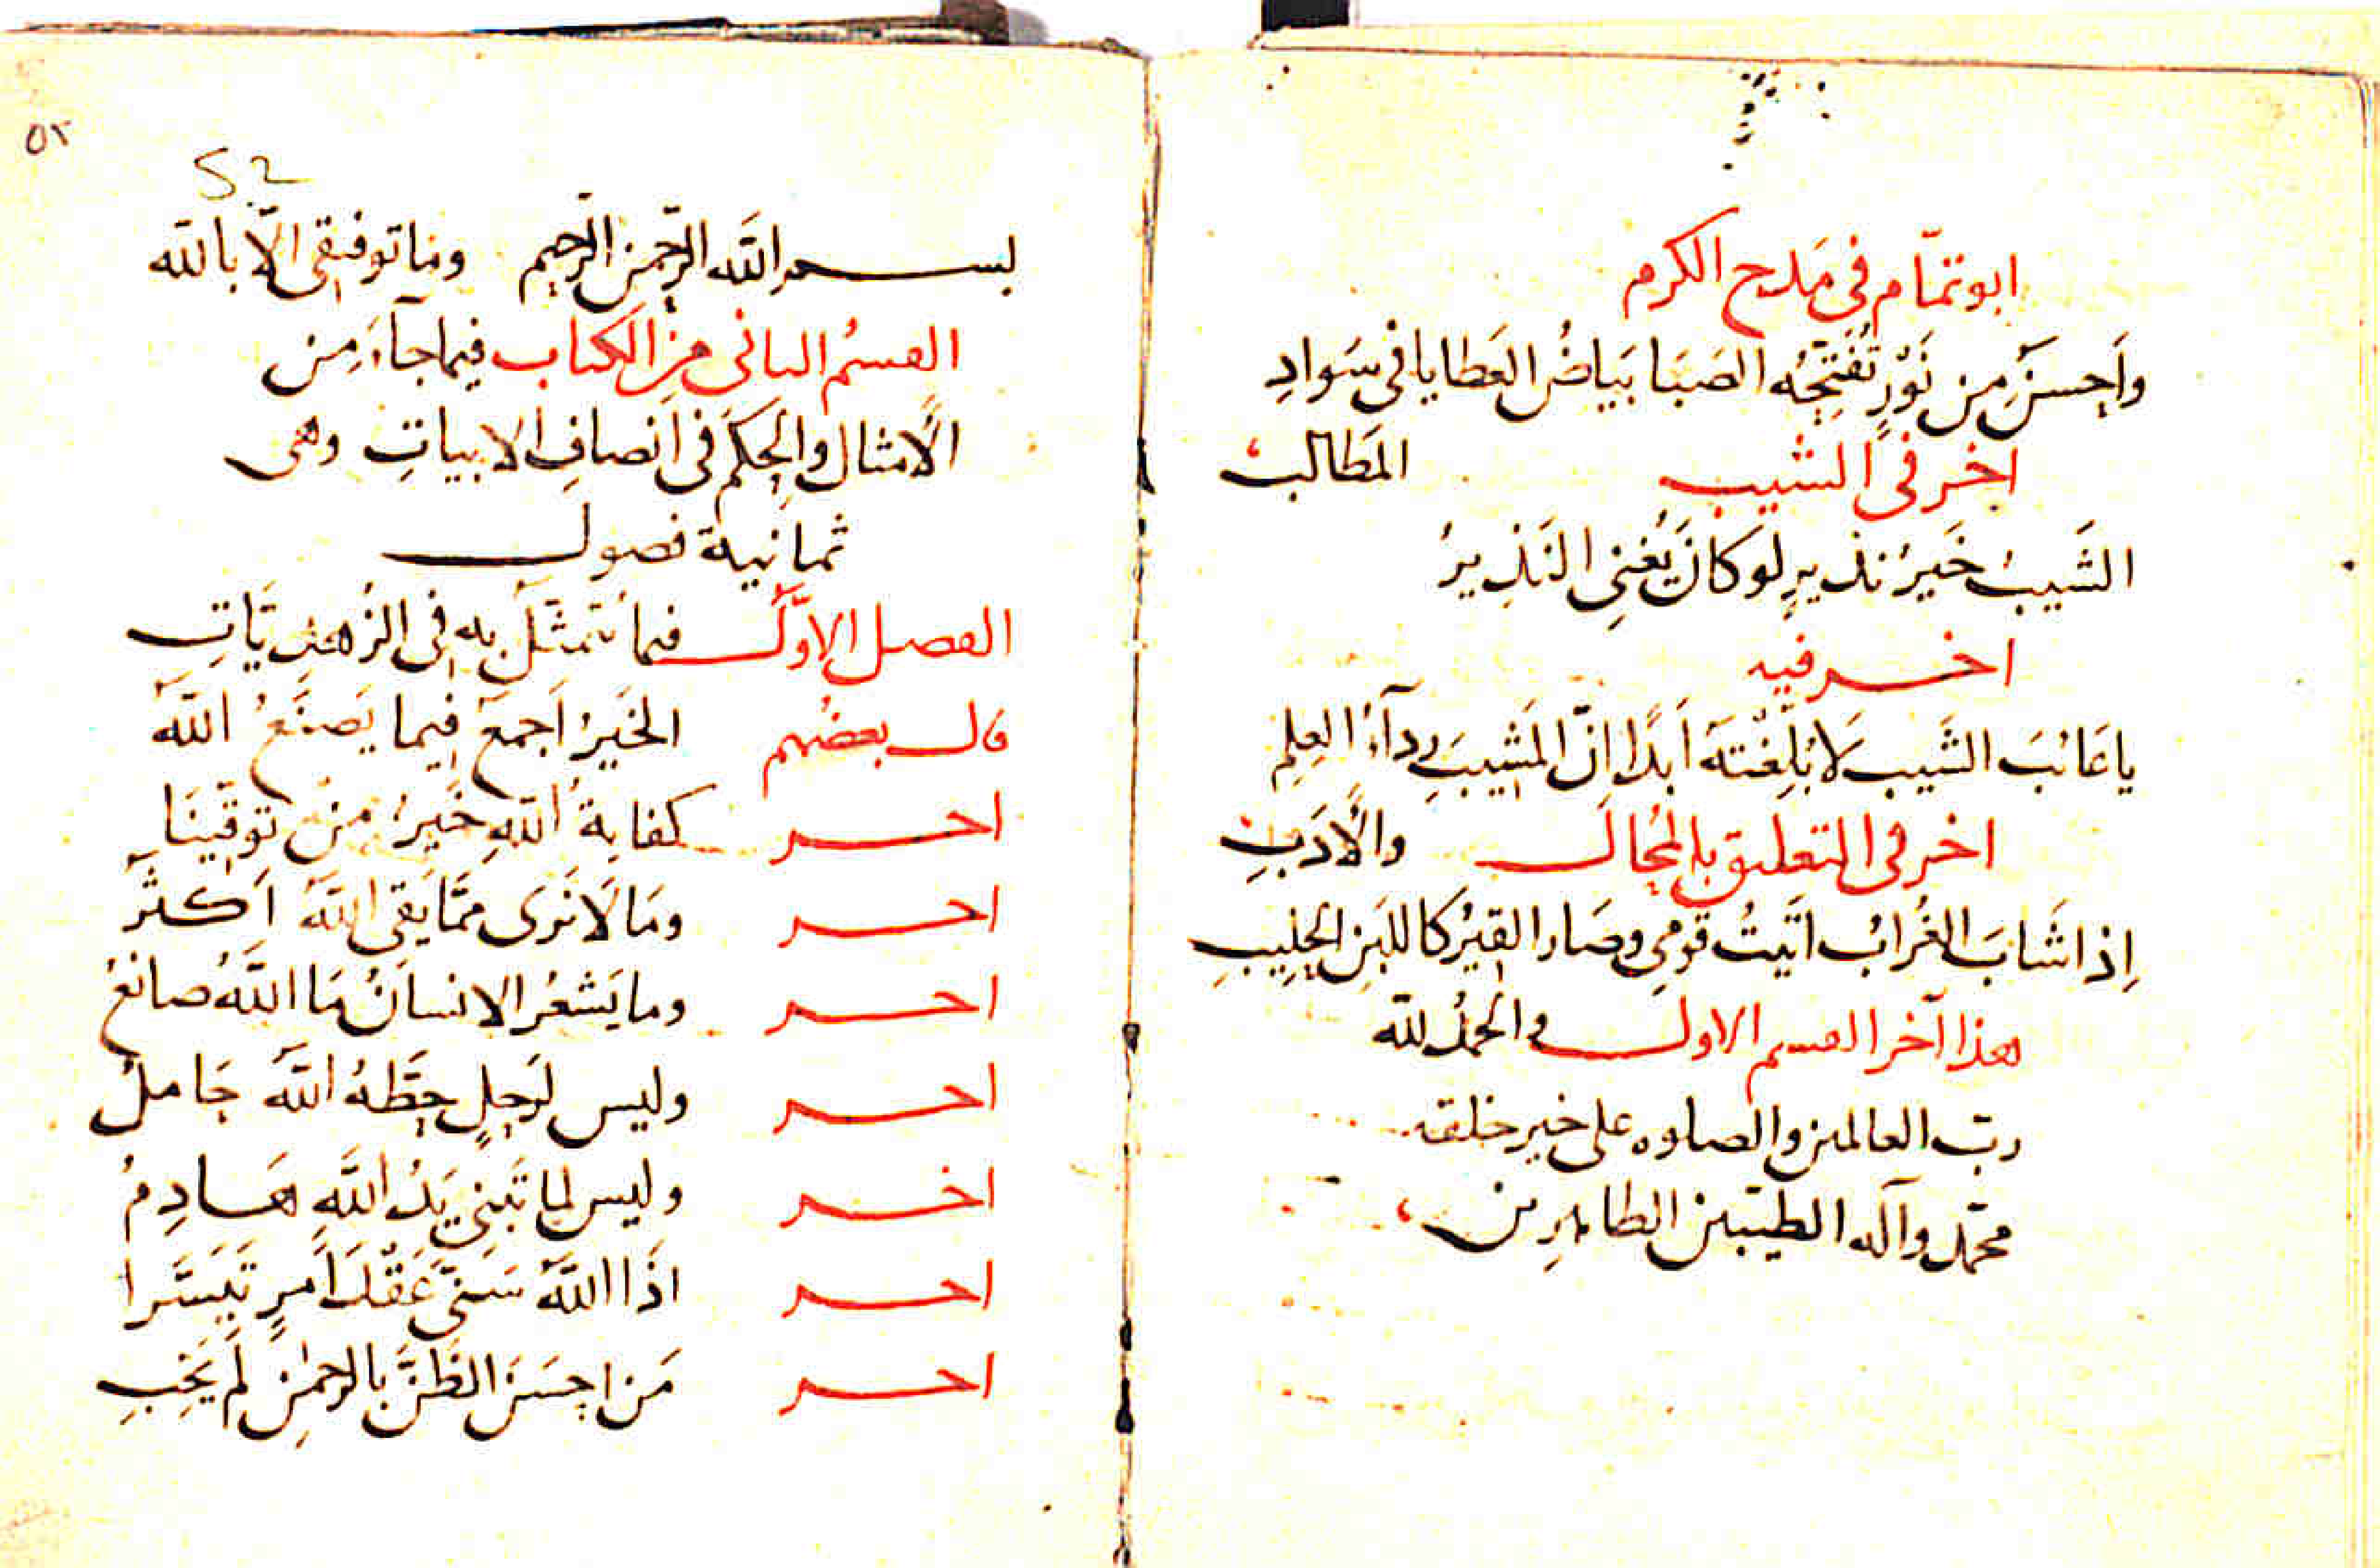 ابو تمّام فى مَدح الكرم
واَحسَنُ مِن نَوْرٍ تُفَتِّحُه الصَبَا بَيَاضُ العَطايا فى سَوادِ
المَطالب
اخر فى الشيب
الشَيبُ خَيرُ نذيرٍ لو كانَ يُغنِى النَذِيرُ
اخر فيه
يا عَائبَ الشَيب لَا بُلِّغْتَه اَبدًا اِنّ المَشيبَ رِدآءُ العِلمِ
والاَدَبِ
اخر فى التعليق بالمُحال
اِذا شَابَ الغُرابُ اتَيتُ قَومِى وصَار القِيْرُ كاللبَنِ الحَلِيبِ
هذا آخر القسم الاول والحمدُ لله
ربّ العالمين والصلوه على خير خلقه
محمّد وآله الطيّبين الطاهرِين
٥٢
52
بسم الله الرّحمن الرّحيم وما توفيقى الّا بالله
القسمُ الثانى من الكتاب فيما جآءَ مِن
الاَمثال والحِكَم فى اَنصافِ الابياتِ وهى
ثمانية فصول
الفصل الاوّل فيما يُتَمثَّلُ به فى الزُهديَّاتِ
قال بعضُهم الخَيرُ اَجمعُ فيما يَصنَعُ اللهُ
اخر كفايةُ اللهِ خَيرٌ مِنْ تَوقِّينَا
اخر ومَا لَا نَرَى ممَّا يَقِى اللهُ اَكثَرُ
اخر وما يَشعُر الانسانُ مَا اللهُ صانعُ
اخر وليس لرَحلٍ حَطَّهُ اللهُ حَاملُ
اخر وليس لما تَبنِى يَدُ اللهِ هَادِمُ
اخر اذَا اللهُ سَنَّى عَقْدَ اَمرٍ تَيَسَّرا
اخر مَن احسَنَ الظَنَّ بالرحمٰنِ لَم يَخِبِ